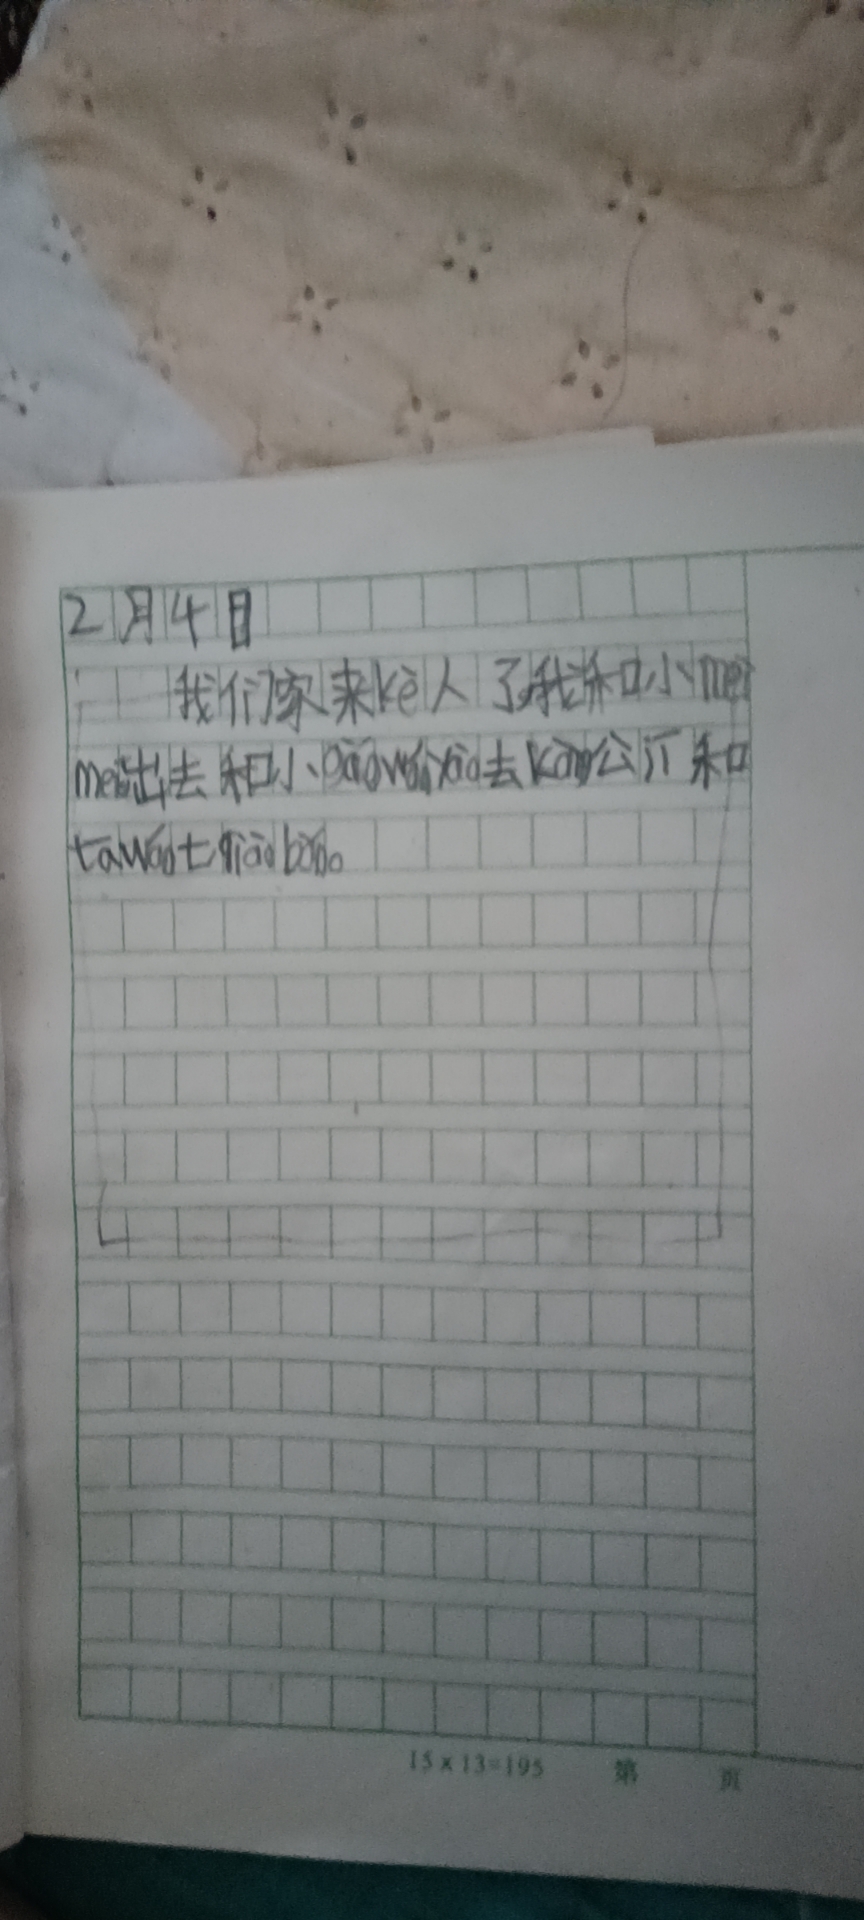 2月4日
我们家来kè人了我和小mèi
mei出去和小gāo去kàng公厅和
tawáo七qiǎo bǎo。
15×13=195 第 页